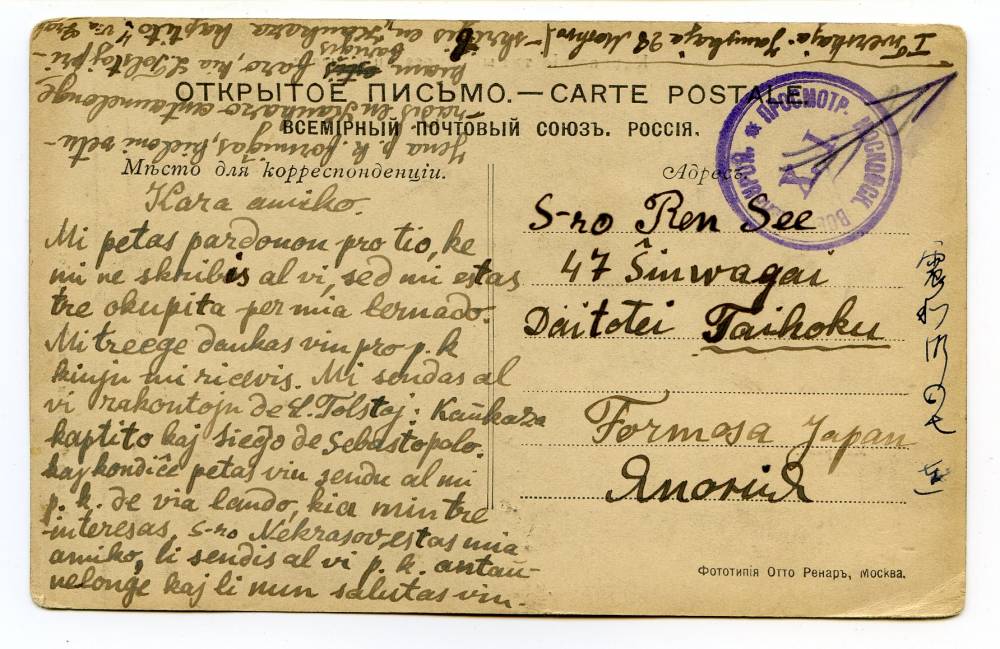 ОТКРЫТОЕ ПИСЬМО.—CARTE POSTALE
ВСЕМІРНЫЙ ПОЧТОВЫЙ СОЮЗЪ. РОССІЯ.
Мѣсто для корреспонденціи.
Адресъ.
Kara amiko.
Mi petas pardonon pro tio, ke
mi ne skribis al vi, sed mi estas
tre okupita per mia lernado.
Mi treege dankas vin pro p. k
kiujn mi ricevis. Mi sendas al
vi rakontojn de L. Tolstoj: Kaŭkaza
kaptito kaj sieĝo de Sebastopolo.
kaj kondiĉe petas vin sendu al mi
p. k. de via lando, kia min tre
interesas, S-ro Nekrasov, estas mia
amiko, li sendis al vi p. k. antaŭ-
nelonge kaj li nun salutas vin.
S-ro Ren See
47 Ŝinwagai
Daitotei Taihoku
Formosa Japan
Японія
ПРОСМОТР. МОСКОВСК. ВОЕН. ЦЕНЗУРОЙ.
XXI
Фототипія Отто Ренаръ, Москва.